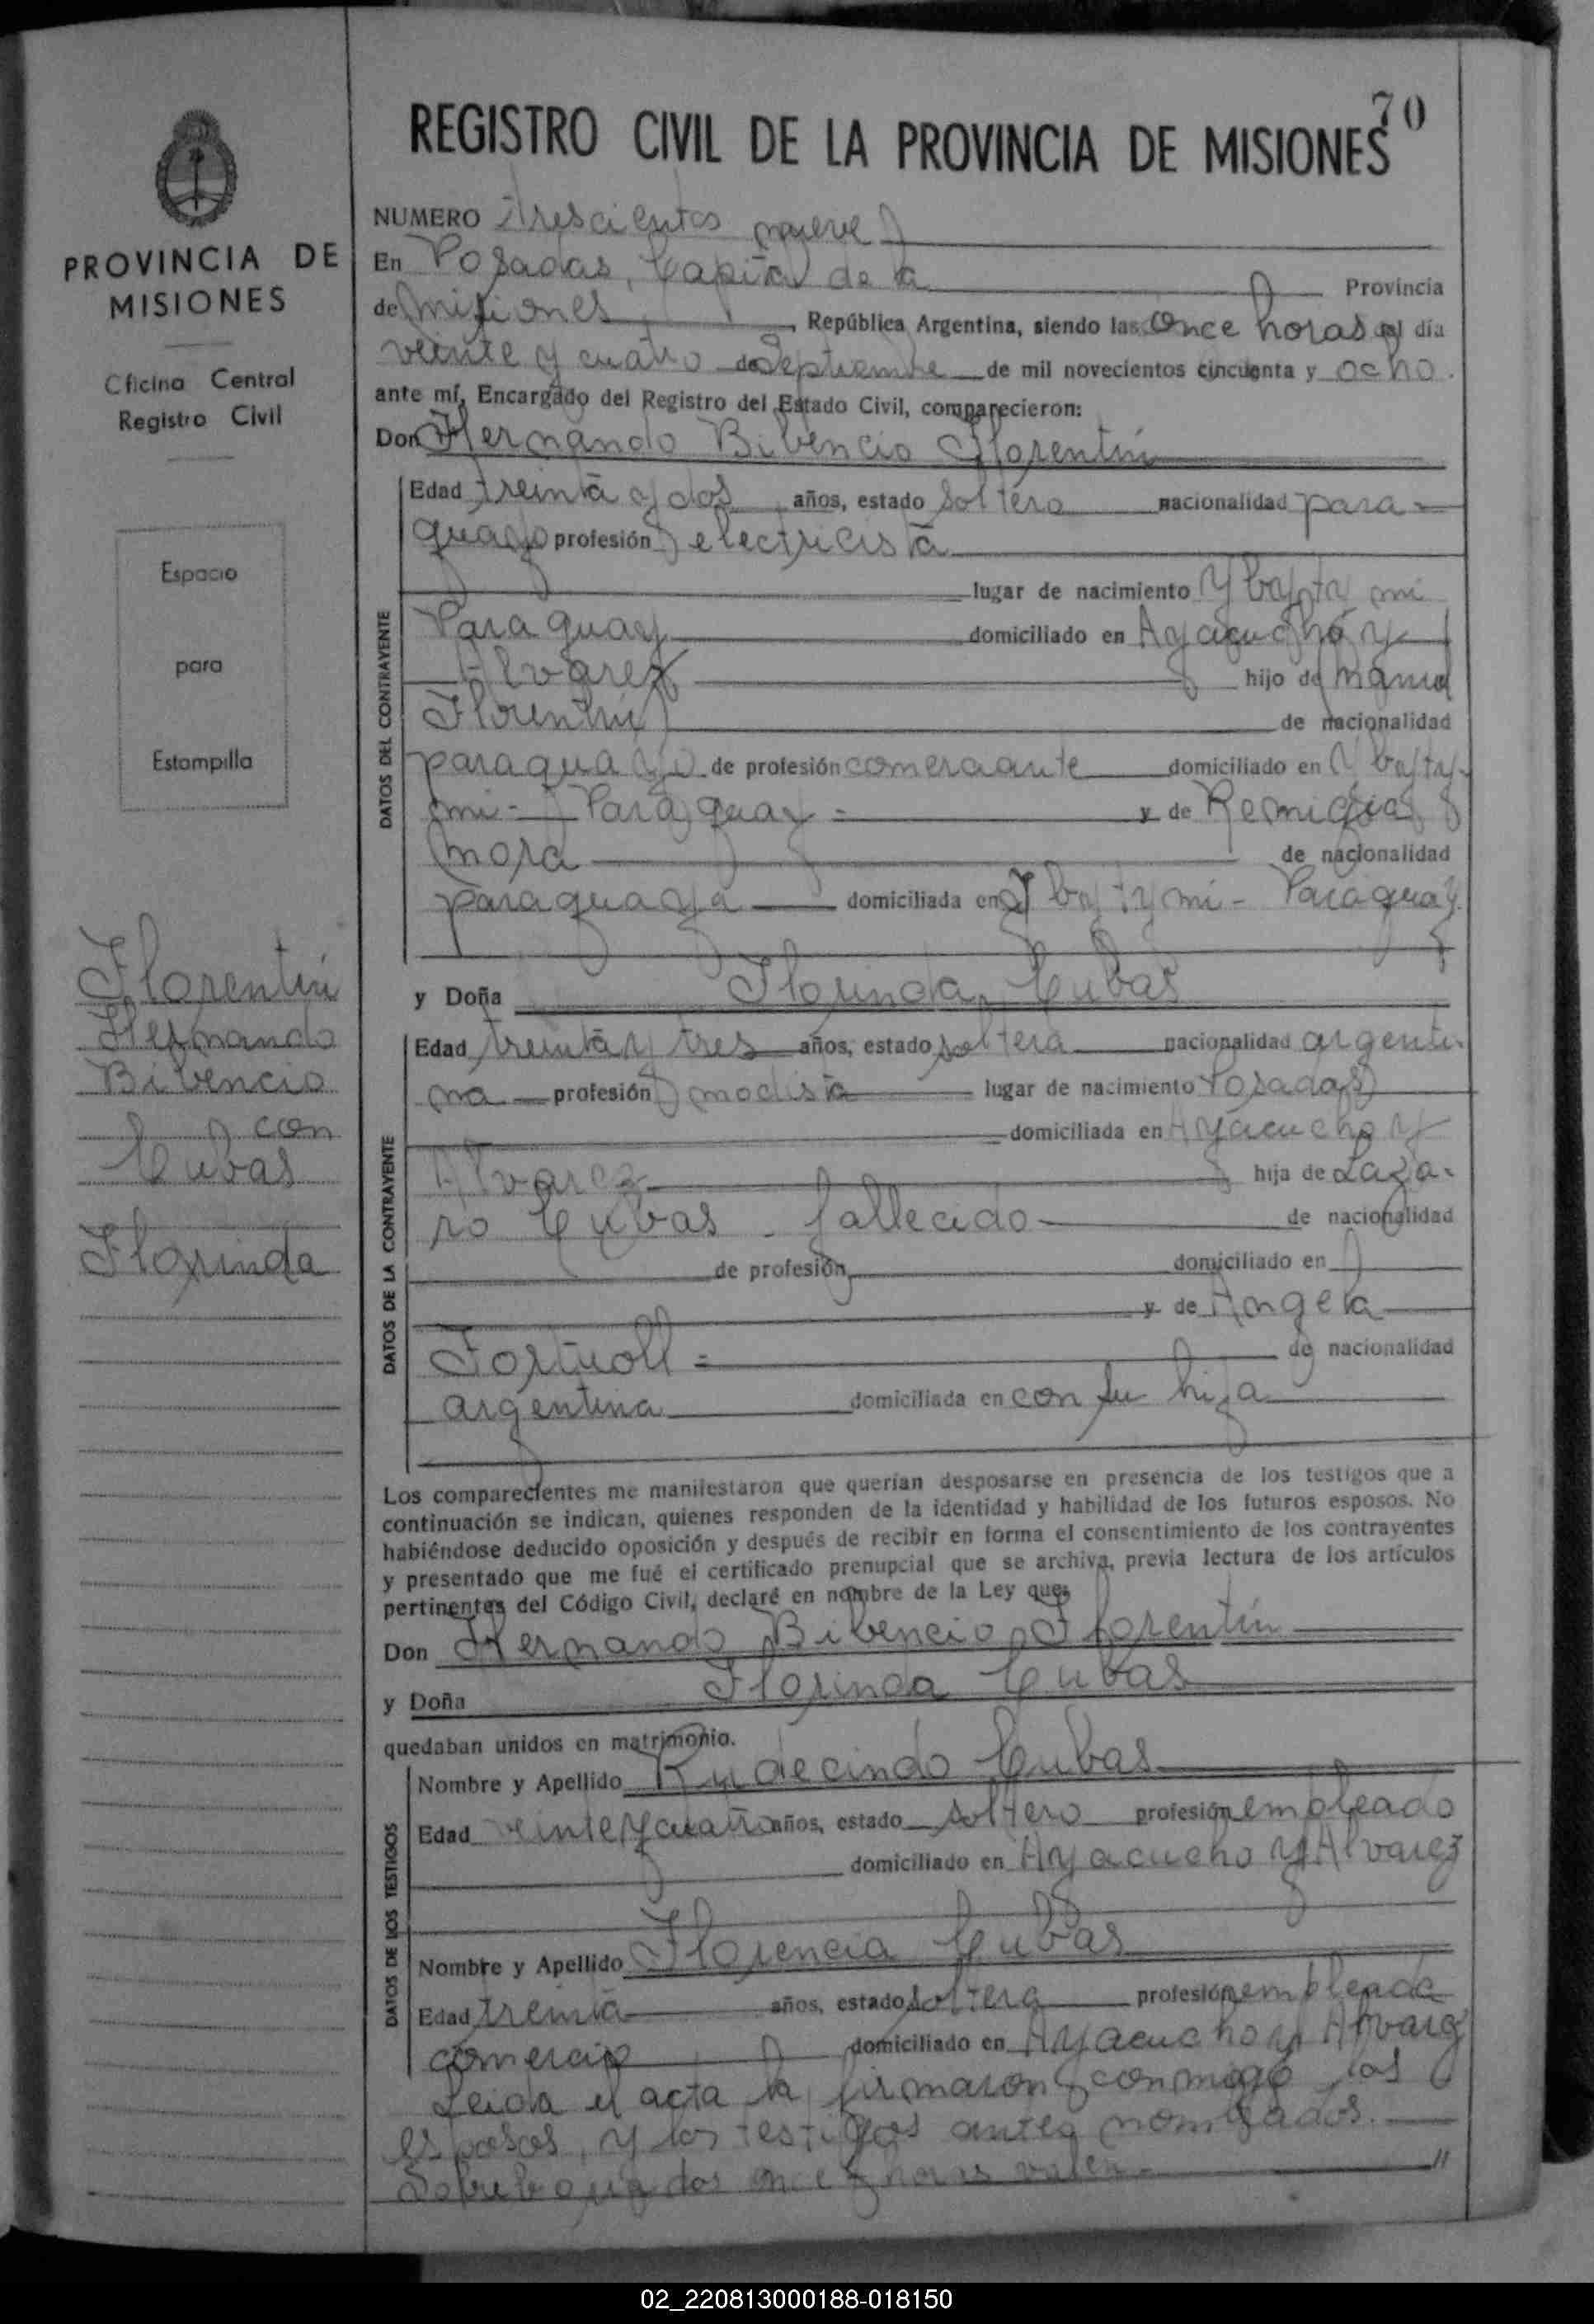 70
REGISTRO CIVIL DE LA PROVINCIA DE MISIONES
PROVINCIA DE
MISIONES
Oficina Central
Registro Civil
Espacio
para
Estampilla
Florentín
Hernando
Bibencio
y con
Cubas
Florinda
NUMERO trescientos nueve
En Posadas, Capital de la Provincia
de Misiones, República Argentina, siendo las once horas del día
veinte y cuatro de Septiembre de mil novecientos cincuenta y ocho.
ante mí, Encargado del Registro del Estado Civil, comparecieron:
Don Hernando Bibencio Florentín
DATOS DEL CONTRAYENTE
Edad treinta y dos años, estado soltero nacionalidad para=
guayo profesión electricista
lugar de nacimiento Ybyty mi
Paraguay domiciliado en Ayacucho y
Alvarez hijo de Manuel
Florentín de nacionalidad
paraguayo de profesión comerciante domiciliado en Ybyty-
mi - Paraguay = y de Remigia
Mora de nacionalidad
paraguaya domiciliada en Ybytymi - Paraguay.
y Doña Florinda Cubas
DATOS DE LA CONTRAYENTE
Edad treinta y tres años, estado soltera nacionalidad argenti-
na profesión modista lugar de nacimiento Posadas
domiciliada en Ayacucho y
Alvarez hija de Laza-
ro Cubas - fallecido de nacionalidad
de profesión domiciliado en
y de Angela
de nacionalidad
argentina domiciliada en con su hija
Los comparecientes me manifestaron que querían desposarse en presencia de los testigos que a
continuación se indican, quienes responden de la identidad y habilidad de los futuros esposos. No
habiéndose deducido oposición y después de recibir en forma el consentimiento de los contrayentes
y presentado que me fué el certificado prenupcial que se archiva, previa lectura de los artículos
pertinentes del Código Civil, declaré en nombre de la Ley que:
Don Hernando Bibencio Florentín
y Doña Florinda Cubas
quedaban unidos en matrimonio.
DATOS DE LOS TESTIGOS
Nombre y Apellido Rudecindo Cubas
Edad veinte y cuatro años, estado soltero profesión empleado
domiciliado en Ayacucho y Alvarez
Nombre y Apellido Florencia Cubas
Edad treinta años, estado soltera profesión empleada
comercio domiciliado en Ayacucho y Alvarez
Leida el acta la firmaron conmigo los
esposos, y los testigos antes nombrados.
Sobreborrados once horas valen.- "
02_220813000188-018150